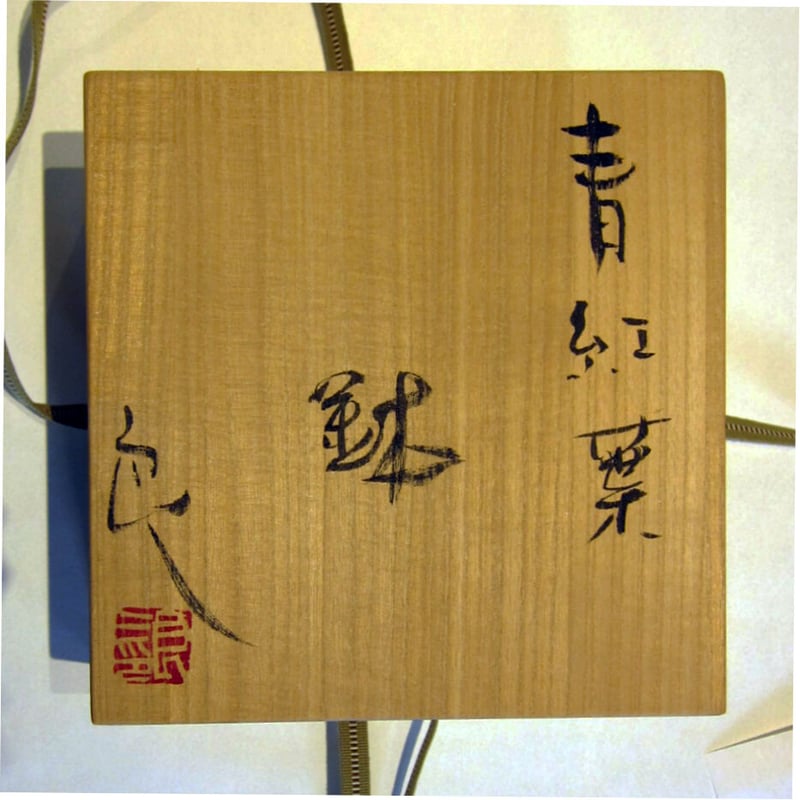 青紅葉
鉢
良